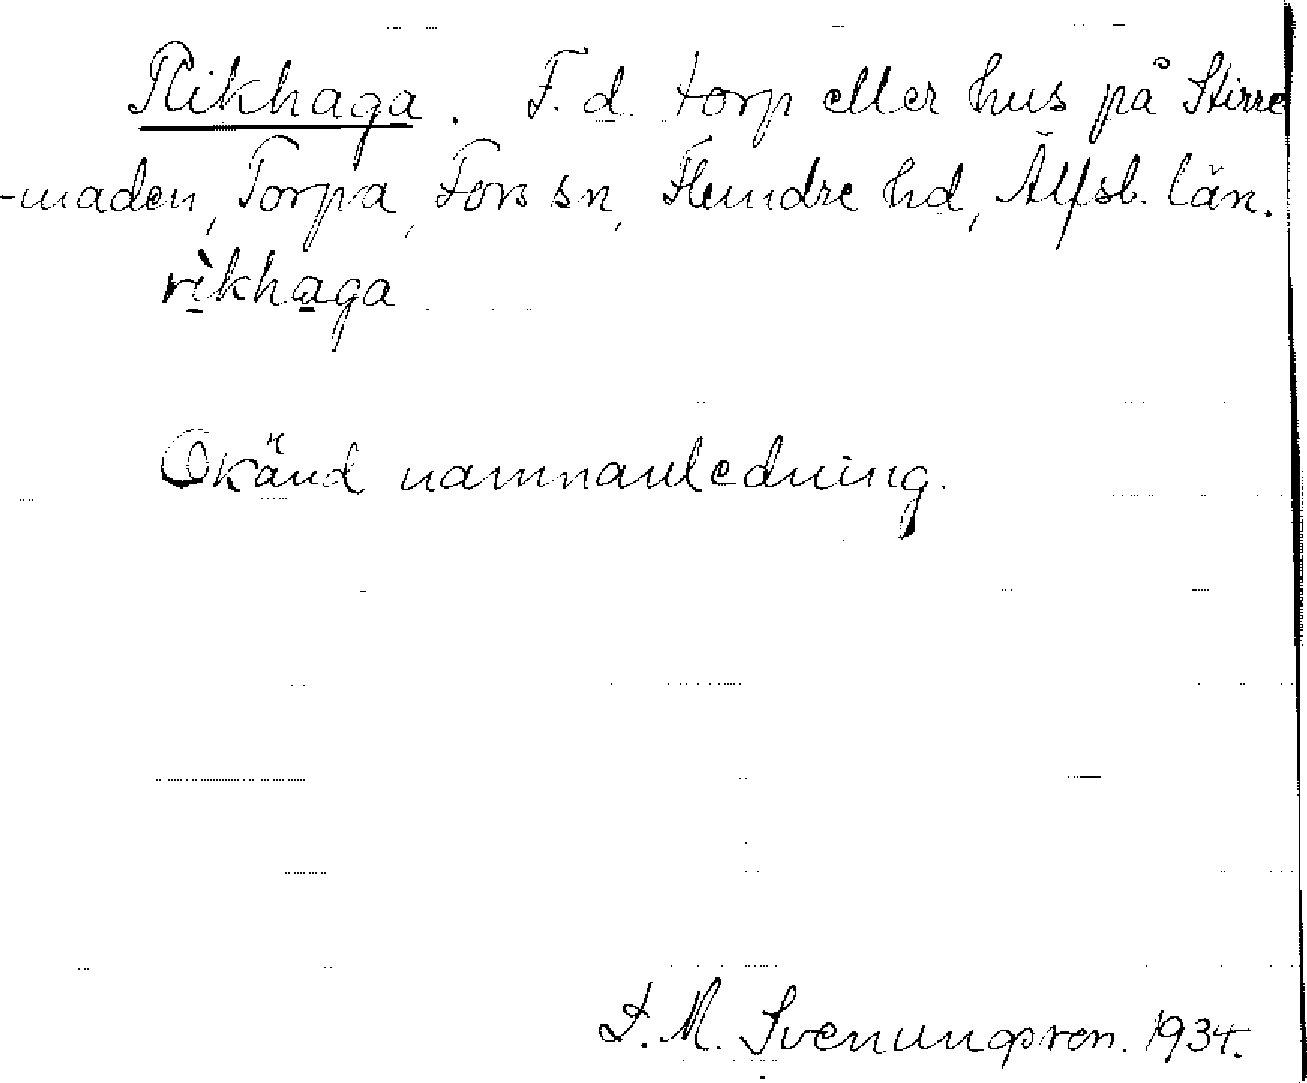 Rikhaga. F.d. torp eller hus på Stirre
-maden, Torpa, Fors sn, Flundre hd, Älfsb. län.
rìkhaga
Okänd namnanledning.
I. M. Svenungsson. 1934.